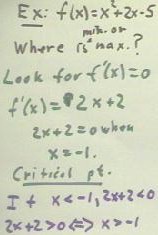 Ex: f(x)=x²+2x-5
min. or
Where is max.?
Look for f'(x)=0
f'(x)=2x+2
2x+2=0 when
x=-1.
Critical pt.
If x<-1, 2x+2<0
2x+2>0 <=> x>-1